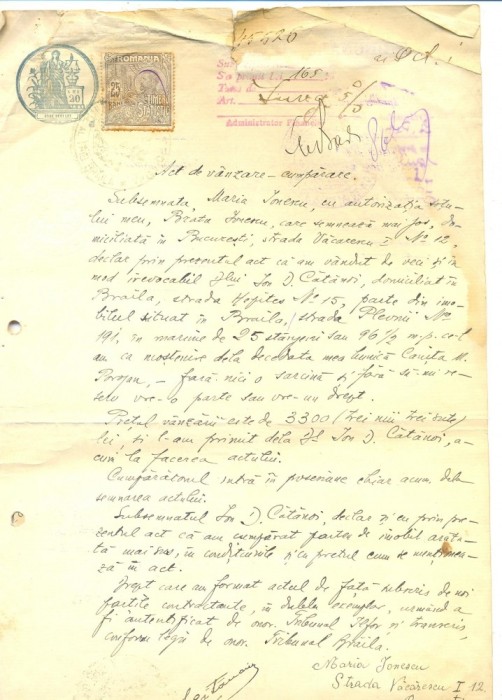 ROMANIA
25
BANI
TIMBRU
STATISTIC
30
165
Administrator Financiar
Act de vânzare - cumpărare.
Subsemnata, Maria Ionescu, cu autorizația soțu-
lui meu, Ionescu, care semnează mai jos, do-
miciliată în București, strada Văcărescu I No 12,
declar prin prezentul act că am vândut de veci și în
mod irevocabil Dlui Ion D. Cătănoi, domiciliat în
Brăila, strada Hepites No 15, parte din imo-
bilul situat în Brăila, strada Plevnii No
191, în mărime de 25 stânjeni sau 96 1/2 m.p. ce-l
am ca moștenire dela decedata mea bunică M.
- fără nici o sarcină și fără să-mi re-
zerv vre-o parte sau vre-un drept.
Prețul vânzării este de 3300 (trei mii trei sute)
lei, și l-am primit dela Dl Ion D. Cătănoi, a-
cum la facerea actului.
Cumpărătorul intră în posesiune chiar acum dela
semnarea actului.
Subsemnatul Ion D. Cătănoi, declar și eu prin pre-
zentul act că am cumpărat partea de imobil arăta-
tă mai sus, în condițiunile și cu prețul cum se menționea-
ză în act.
Drept care am format actul de față subscris de noi
părțile contractante, în dublu exemplar, urmând a
fi autentificat de onor. Tribunal Ilfov și transcris,
conform legii de onor. Tribunal Brăila.
Maria Ionescu
Strada Văcărescu I 12